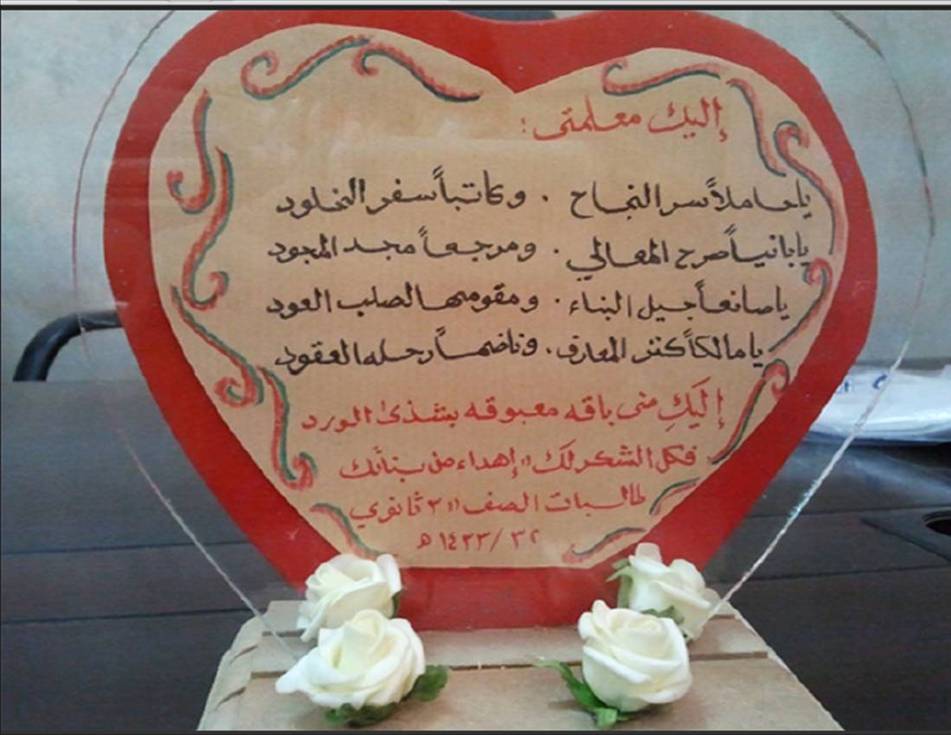 إليك معلمتي :
يا حاملاً سر النجاح . وكاتباً سفر الخلود
يا بانياً صرح المعالي . ومرجعاً مجد المجود
يا صانعاً جيل البناء . ومقومها لصلب العود
يا مالكاً كنز المعارف . وناضماً رحله العقود
إليكِ مني باقه معبوقه بشذى الورد
فكل الشكر لك ،، إهداء من بناتك
طالبات الصف ،، ٣ ثانوي
٣٢ / ١٤٣٣ هـ